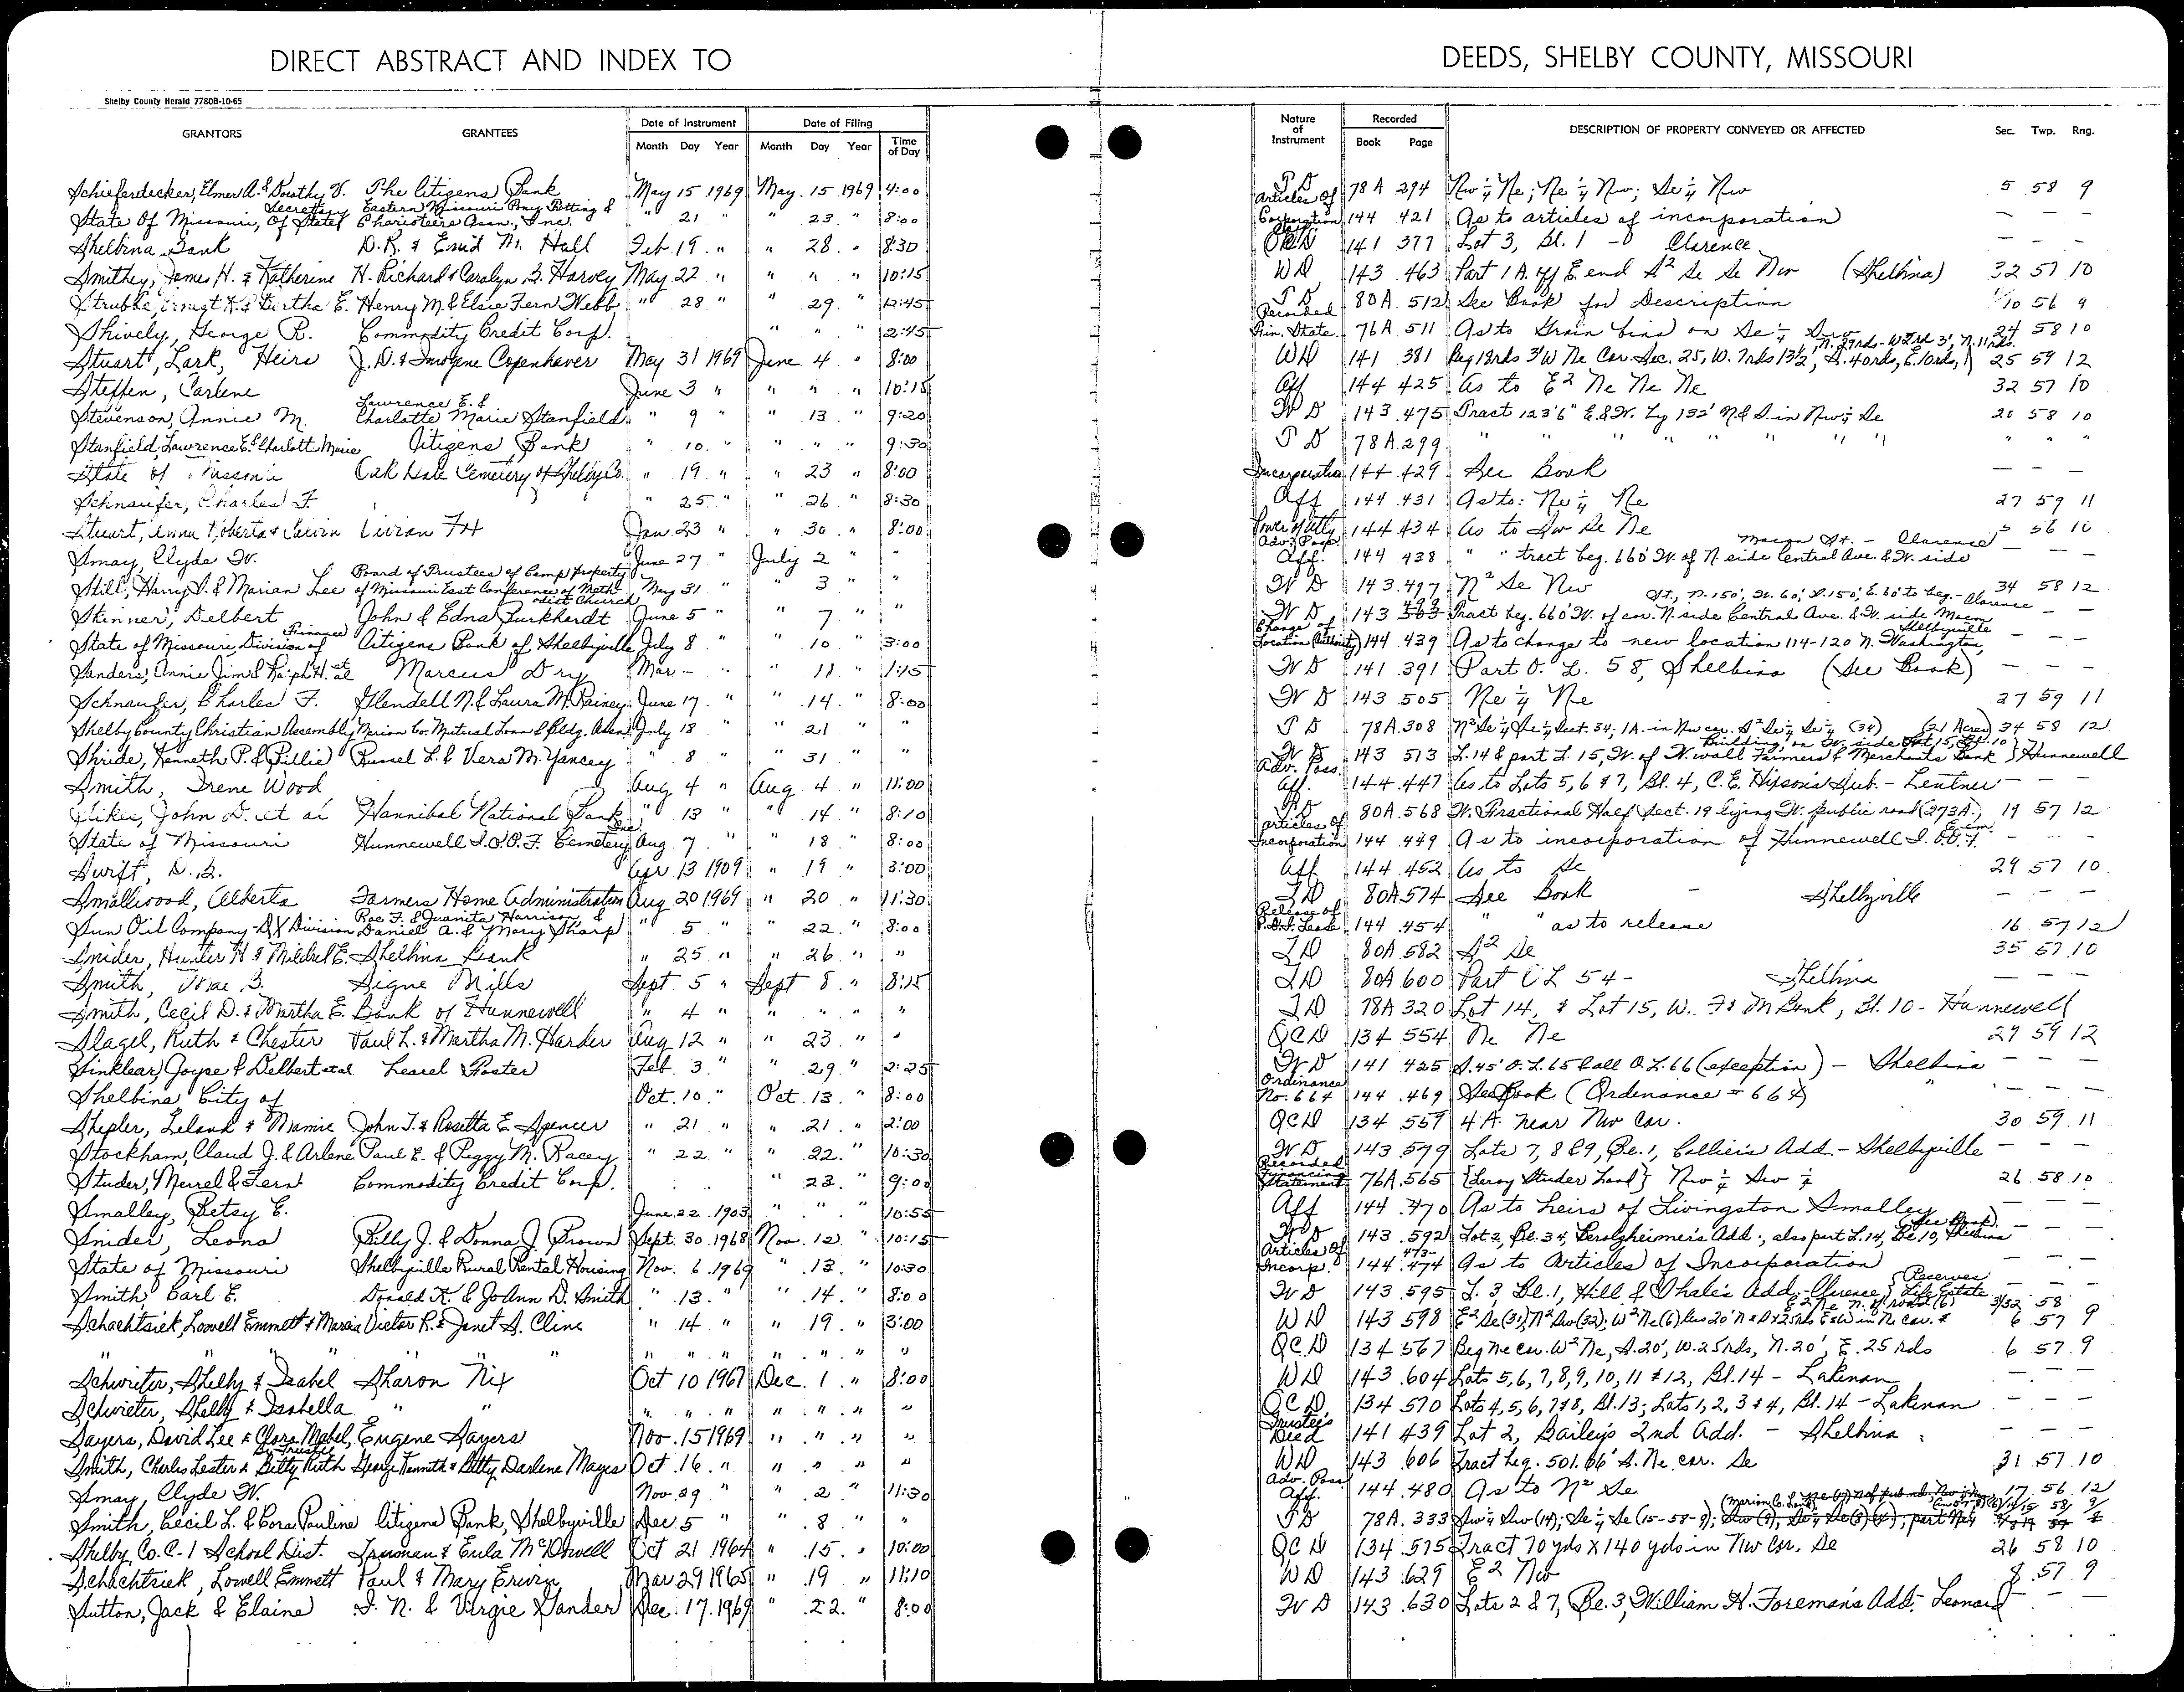 DIRECT ABSTRACT AND INDEX TO DEEDS, SHELBY COUNTY, MISSOURI
Shelby County Herald 7780B-10-65
GRANTORS GRANTEES Date of Instrument Date of Filing Nature of Instrument Recorded DESCRIPTION OF PROPERTY CONVEYED OR AFFECTED Sec. Twp. Rng.
Month Day Year Month Day Year Time of Day Book Page
Schieferdecker, Elmer A. & Dorothy V. The Citizens Bank May 15 1969 May 15 1969 4:00 T D 78A 294 Nw ¼ Ne; Ne ¼ Nw; Se ¼ Nw 5 58 9
State Of Missouri, Secretary Of State Eastern Missouri Pony Trotting & Charioteers Assn., Inc. " 21 " " 23 " 8:00 Articles Of Corporation 144 421 As to articles of incorporation — — —
Shelbina Bank D.R. & Enid M. Hall Feb 19 " " 28 " 8:30 QCD 141 377 Lot 3, Bl. 1 - Clarence — — —
Smithey, James H. & Katherine H. Richard & Carolyn B. Harvey May 22 " " " " 10:15 WD 143 463 Part 1 A. off E. end S² Se Se Nw (Shelbina) 32 57 10
Strubbe, Ernest K. & Bertha E. Henry M. & Elsie Fern Webb " 28 " " 29 " 12:45 T D 80A 512 See Book for Description 10 56 9
Shively, George R. Commodity Credit Corp. " " " 2:45 Recorded Fin. State. 76A 511 As to Grain bins on Se ¼ Sw 24 58 10
Stuart, Lark, Heirs J.D. & Imogene Copenhaver May 31 1969 June 4 " 8:00 WD 141 381 Beg 18rds 3' W Ne Cor. Sec. 25, W. 7rds 13½', S. 40rds, E. 10rds, N. 29rds - W 2rd 3', N. 11rds. 25 59 12
Steffen, Carlene June 3 " " " " 10:15 Aff 144 425 As to E² Ne Ne Ne 32 57 10
Stevenson, Annie M. Lawrence E. & Charlotte Marie Stanfield " 9 " " 13 " 9:20 W D 143 475 Tract 123'6" E. & W. by 132' N & S in Nw ¼ Se 20 58 10
Stanfield, Lawrence E. & Charlott Marie Citizens Bank " 10 " " " " 9:30 T D 78A 299 " " " " " " " " " "
State of Missouri Oak Dale Cemetery of Shelby Co. " 19 " " 23 " 8:00 Incorporation 144 429 See Book — — —
Schnaufer, Charles F. " 25 " " 26 " 8:30 Aff 144 431 As to: Ne ¼ Ne 27 59 11
Stuart, Anna Roberta & Calvin Vivian Jan 23 " " 30 " 8:00 Power of Atty 144 434 As to Sw Se Ne 5 56 10
Smay, Clyde W. June 27 " July 2 " " Adv. Poss. Aff. 144 438 " " tract beg. 660' W. of N side Central Ave. & W. side Macon St. - Clarence — —
Still, Harry S. & Marian Lee Board of Trustees of Camp property of Missouri East Conference of Methodist Church May 31 " " 3 " " W D 143 497 N² Se Nw 34 58 12
Skinner, Delbert John & Edna Burkhardt June 5 " " 7 " " W D 143 499 Tract beg. 660' W. of cor. N. side Central Ave. & W. side Macon St., N. 150', W. 60', S. 150', E. 60' to beg. - Clarence — —
State of Missouri, Division of Finance Citizens Bank of Shelbyville July 8 " " 10 " 3:00 Change of Location (Authority) 144 439 As to change to new location 114-120 N. Washington, Shelbyville — — —
Sanders, Annie Jim & Ralph H. et al Marcus Dry Mar - " " 11 " 1:15 W D 141 391 Part O. L. 58, Shelbina (See Book) — — —
Schnaufer, Charles F. Glendell N. & Laura M. Rainey June 17 " " 14 " 8:00 W D 143 505 Ne ¼ Ne 27 59 11
Shelby County Christian Assembly Marion Co. Mutual Loan & Bldg. Assn. July 18 " " 21 " " T D 78A 308 N² Se ¼ Se ¼ Sect. 34; 1A. in Nw cor. S² Se ¼ Se ¼ (34) (21 Acres) 34 58 12
Shride, Kenneth P. & Billie Russel L. & Vera M. Yancey " 8 " " 31 " " W D 143 513 L. 14 & part L. 15, W. of W. wall Farmers & Merchants Bank Building, on W. side Lot 15, Bl. 10 Hunnewell
Smith, Irene Wood Aug 4 " Aug. 4 " 11:00 Adv. Poss. Aff. 144 447 As to Lots 5, 6 & 7, Bl. 4, C.E. Hixson's Sub. - Lentner — — —
John D. et al Hannibal National Bank " 13 " " 14 " 8:10 80A 568 W. Fractional Half Sect. 19 lying W. public road (273A.) 19 57 12
State of Missouri Hunnewell I.O.O.F. Cemetery Inc. Aug 7 " " 18 " 8:00 Articles of Incorporation 144 449 As to incorporation of Hunnewell I.O.O.F. Cem. — — —
Swift, D.B. Apr 13 1909 " 19 " 3:00 Aff 144 452 As to Se 29 57 10
Smallwood, Alberta Farmers Home Administration Aug. 20 1969 " 20 " 11:30 TD 80A 574 See Book - Shelbyville — — —
Sun Oil Company - DX Division Roe F. & Juanita Harrison & Daniel A. & Mary Sharp " 5 " " 22 " 8:00 Release of Lease 144 454 " " as to release 16 57 12
Snider, Hunter H. & Mildred E. Shelbina Bank " 25 " " 26 " " TD 80A 582 S² Se 35 57 10
Smith, B. Signe Mills Sept. 5 " Sept. 8 " 8:15 TD 80A 600 Part OL 54 - Shelbina — — —
Smith, Cecil D. & Martha E. Bank of Hunnewell " 4 " " " " " TD 78A 320 Lot 14, & Lot 15, W. F & M Bank, Bl. 10 - Hunnewell
Slagel, Ruth & Chester Paul L. & Martha M. Harder Aug 12 " " 23 " " QCD 134 554 Ne Ne 29 59 12
Sinklear, Joyce & Delbert et al Learel Foster Feb. 3 " " 29 " 2:25 W D 141 425 S. 45' O. L. 65 & all O. L. 66 (exception) - Shelbina — — —
Shelbina City of Oct. 10 " Oct. 13 " 8:00 Ordinance No. 664 144 469 See Book (Ordinance # 664) " — — —
Shepler, Leland & Mamie John T. & Rosetta E. Spencer " 21 " " 21 " 2:00 QCD 134 557 4 A. near Nw Cor. 30 59 11
Stockham, Claud J. & Arlene Paul E. & Peggy M. Racey " 22 " " 22 " 10:30 W D 143 579 Lots 7, 8 & 9, Bl. 1, Collier's Add. - Shelbyville — — —
Studer, Merrel & Fern Commodity Credit Corp. " 23 " 9:00 Recorded Financing Statement 76A 565 {Leroy Studer Land} Nw ¼ Sw ¼ 26 58 10
Smalley, Betsy E. June 22 1903 " " " 10:55 Aff 144 470 As to heirs of Livingston Smalley — — —
Snider, Leona Billy J. & Donna J. Brown Sept. 30 1968 Nov. 12 " 10:15 W D 143 592 Lot 2, Bl. 34, Berolzheimer's Add., also part L. 14, Bl. 10, Shelbina (See Book) — — —
State of Missouri Shelbyville Rural Rental Housing Nov. 6 1969 " 13 " 10:30 Articles Of Incorp. 144 473-474 As to Articles of Incorporation — — —
Smith Earl E. Donald K. & JoAnn D. Smith " 13 " " 14 " 8:00 W D 143 595 L. 3 Bl. 1, Hill & Whale's Add. - Clarence {Reserves Life Estate — — —
Schachtsiek, Lowell Emmett & Marcia Victor R. & Janet S. Cline " 14 " " 19 " 3:00 WD 143 598 E² Se (31); N² Sw (32); W² Ne (6) less 20' N & S x 25rds E & W in Ne cor. & E² Ne N. of road (6) 31/32 58 6 57 9
" " " " " " " " " " " " QCD 134 567 Beg Ne cor. W² Ne, S. 20', W. 25 rds, N. 20', E. 25 rds 6 57 9
Schwriter, Shelby & Isabel Sharon Nix Oct 10 1967 Dec. 1 " 8:00 WD 143 604 Lots 5, 6, 7, 8, 9, 10, 11 & 12, Bl. 14 - Lakenan — — —
Schwieter, Shelby & Isabella " " " " " " " " " QCD 134 570 Lots 4, 5, 6, 7 & 8, Bl. 13; Lots 1, 2, 3 & 4, Bl. 14 - Lakenan — — —
Sayers, David Lee & Clara Mabel, By Trustee Eugene Sayers Nov. 15 1969 " " " " Trustee's Deed 141 439 Lot 2, Bailey's 2nd Add. - Shelbina — — —
Smith, Charles Lester & Betty Ruth George Kenneth & Betty Darlene Mayes Oct. 16 " " " " " WD 143 606 Tract beg. 501.66' S. Ne. cor. Se 31 57 10
Smay, Clyde W. Nov. 29 " " 2 " 11:30 Adv. Poss. Aff. 144 480 As to N² Se 17 56 12
Smith, Cecil L. & Cora Pauline Citizens Bank, Shelbyville Dec. 5 " " 8 " " T D 78A 333 Sw ¼ Sw (14); Se ¼ Se (15-58-9);
Shelby Co. C-1 School Dist. Truman & Eula McDowell Oct 21 1964 " 15 " 10:00 QCD 134 575 Tract 70 yds X 140 yds in Nw Cor. Se 26 58 10
Schachtsiek, Lowell Emmett Paul & Mary Erwin Mar 29 1965 " 19 " 11:10 WD 143 629 E² Nw 8 57 9
Sutton, Jack & Elaine I. N. & Virgie Sander Dec. 17 1969 " 22 " 8:00 W D 143 630 Lots 2 & 7, Bl. 3, William H. Foreman's Add. Leonard — —